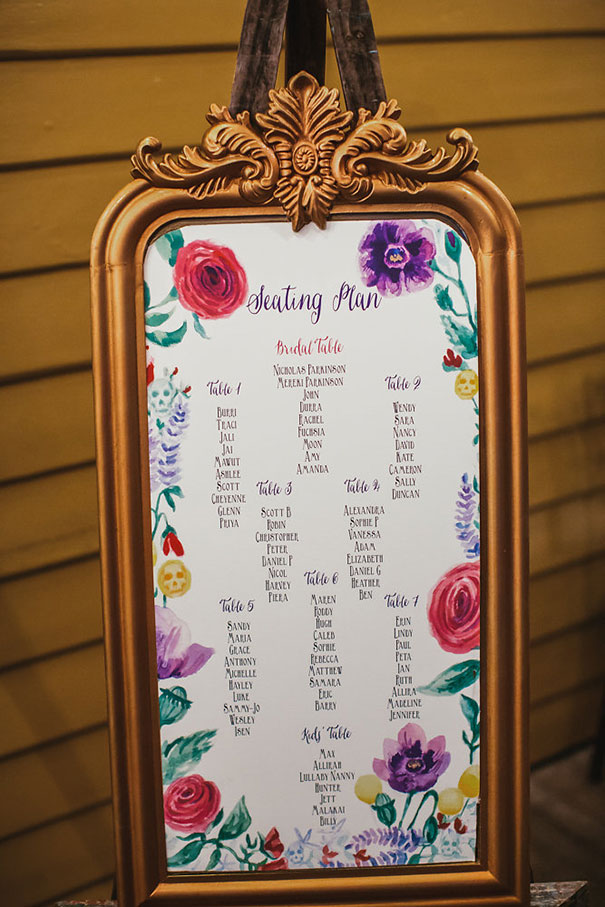 Seating Plan
Bridal Table
Nicholas Parkinson
Mereki Parkinson
John
Durra
Rachel
Fuchsia
Moon
Amy
Amanda
Table 1
Burri
Traci
Jali
Jai
Mawut
Ashlee
Scott
Cheyenne
Glenn
Priya
Table 2
Wendy
Sara
Nancy
David
Kate
Cameron
Sally
Duncan
Table 3
Scott B
Robin
Christopher
Peter
Daniel P
Nicol
Harvey
Piera
Table 4
Alexandra
Sophie P
Vanessa
Adam
Elizabeth
Daniel G
Heather
Ben
Table 5
Sandy
Maria
Grace
Anthony
Michelle
Hayley
Luke
Sammy-Jo
Wesley
Isen
Table 6
Maren
Roddy
Hugh
Caleb
Sophie
Rebecca
Matthew
Samara
Eric
Barry
Table 7
Erin
Lindy
Paul
Peta
Ian
Ruth
Allira
Madeline
Jennifer
Kids' Table
Max
Allirah
Lullaby Nanny
Hunter
Jett
Malakai
Billy